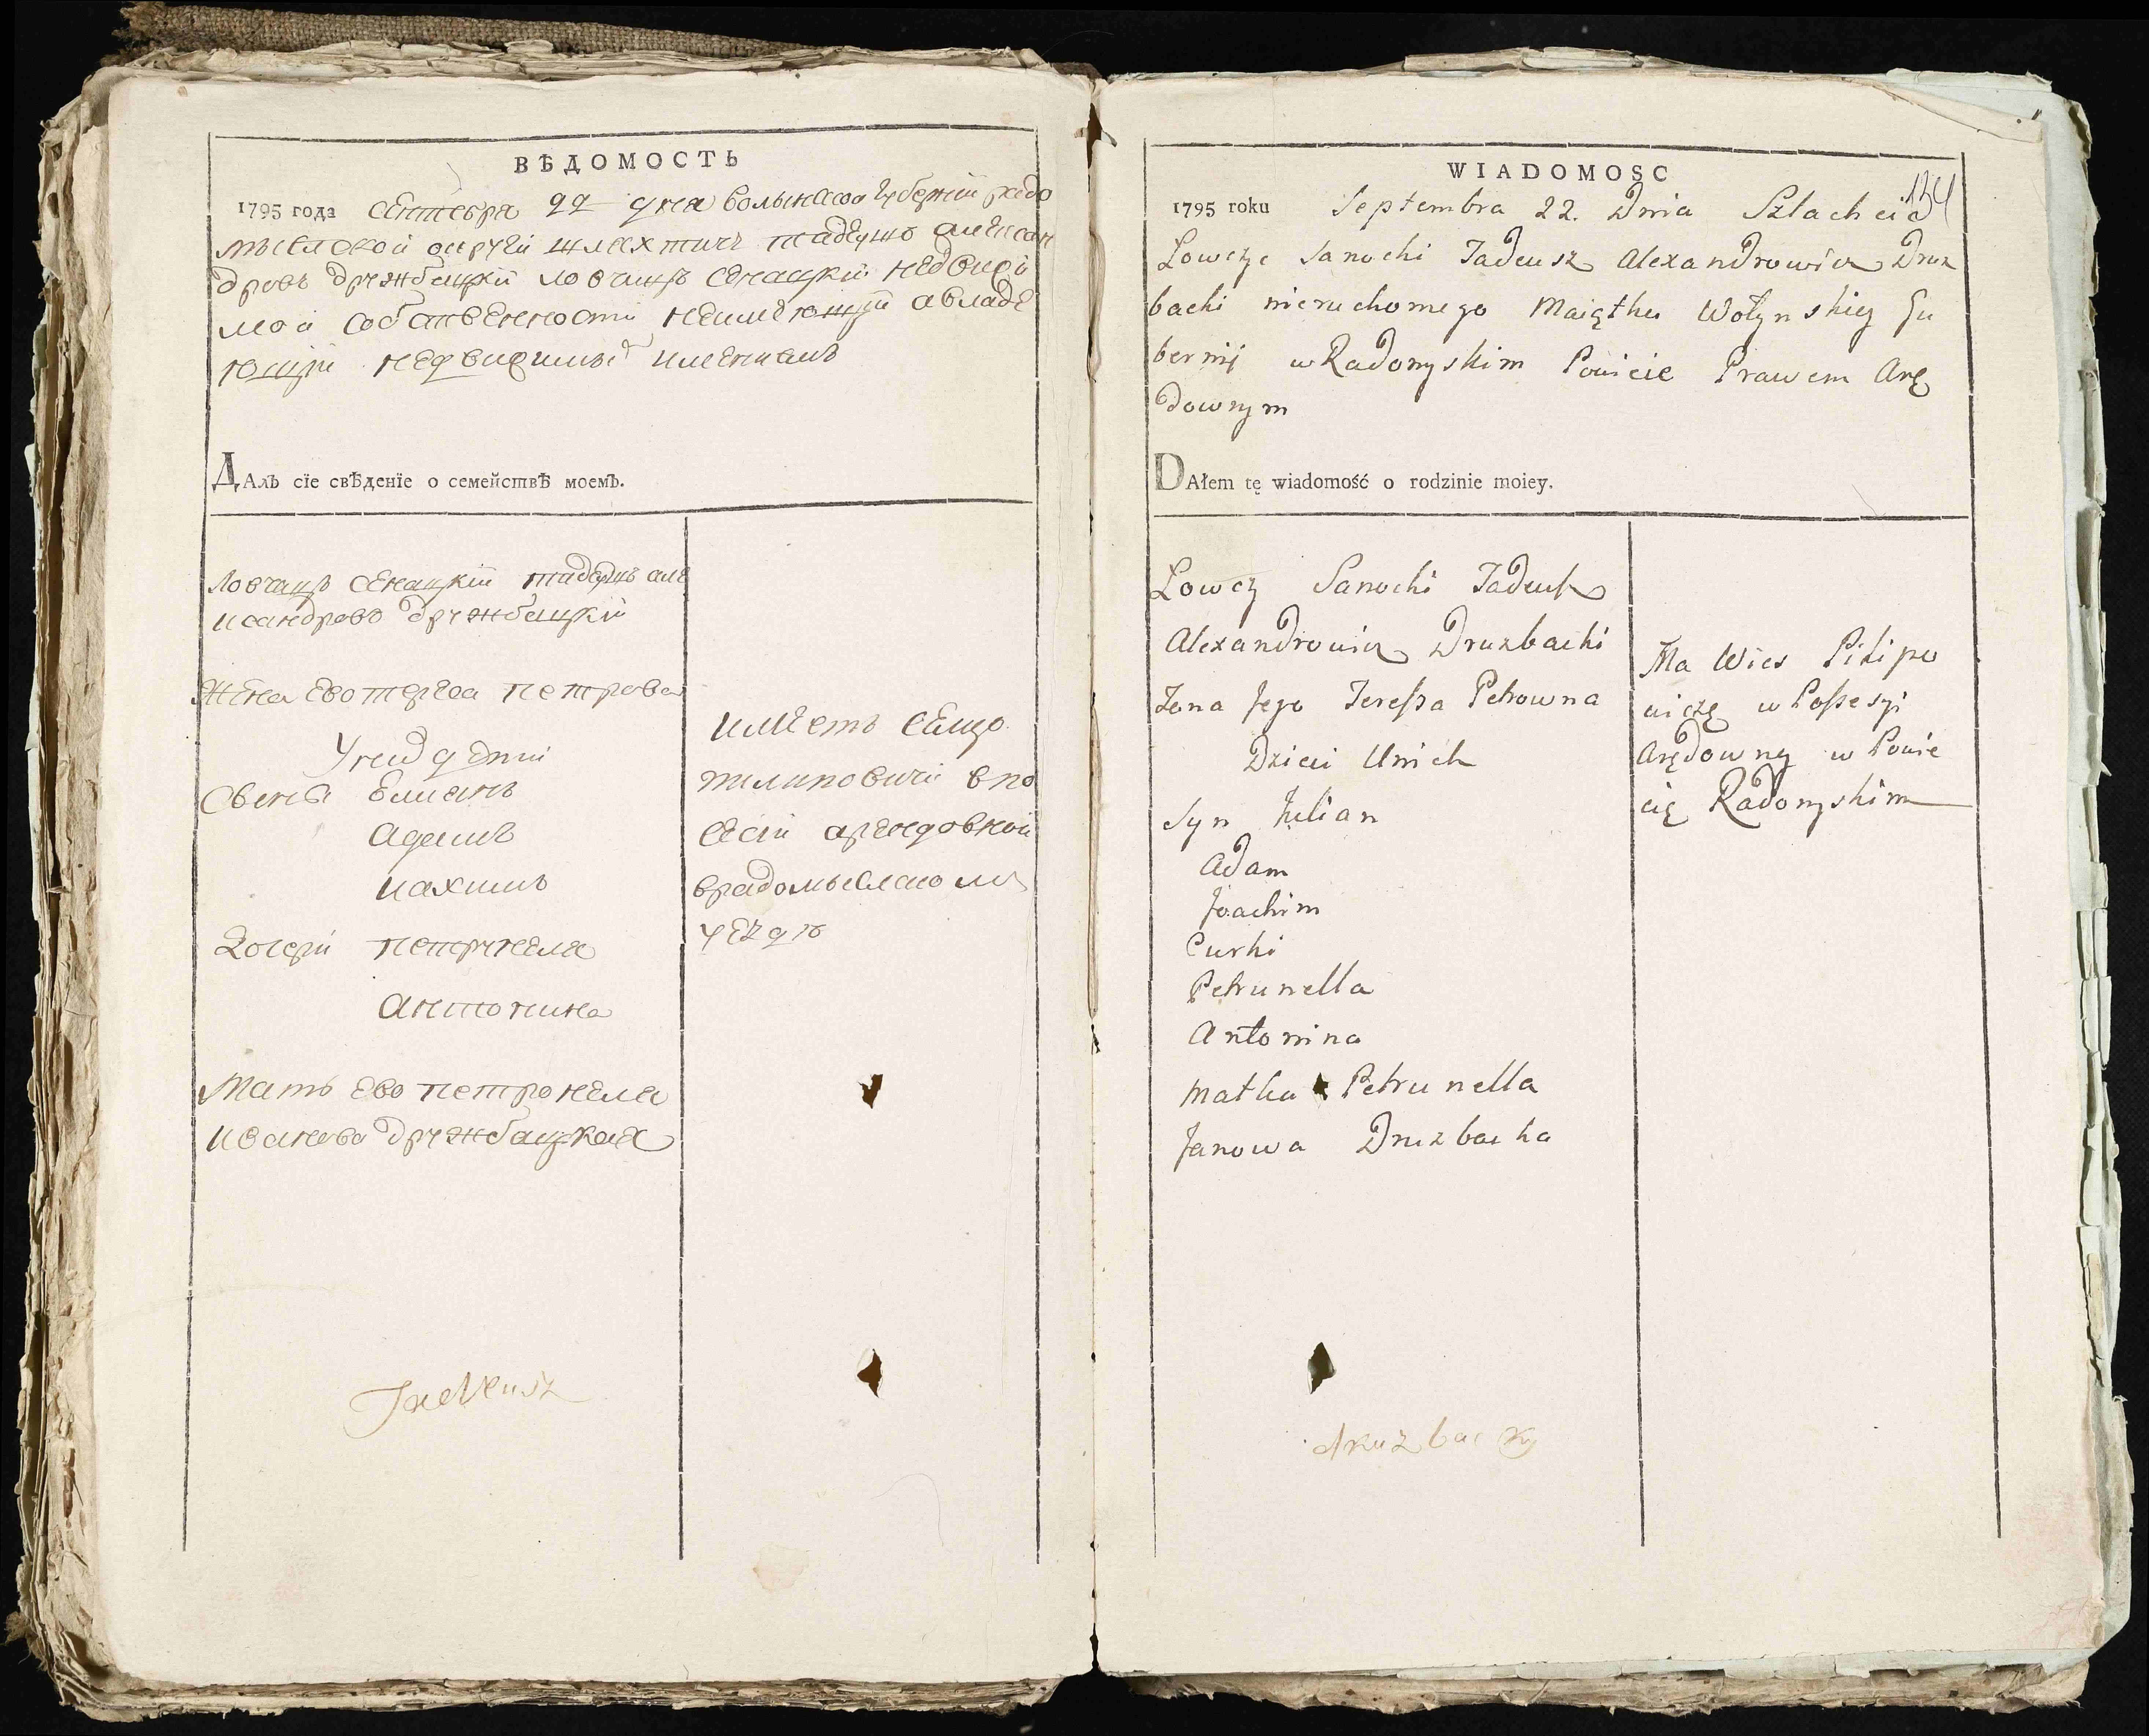 ВѢДОМОСТЬ
1795 года сентебра 22 дня волынской губернїи радо
мыслской округи шляхтичь тадеушъ алексан
дровъ дружбацкїй ловчицъ санацкїй недвижи
мой собственности неимеющїй авладе
ющїй недвижимы имениамъ
ДАлъ сїе свѣденїе о семействѣ моемъ.
ловчицъ санацкїй тадеушъ але
ксандровъ дружбацкїй
жена ево тереса петрова
У них дети
Сыны Елиянъ
адамъ
иахимъ
дочери петрунеля
антонина
мать ево петронеля
иванова дружбацкая
имеетъ селцо
пилиповичи впо
сесїи арендовной
врадомыслском
уездъ
Tadeusz
WIADOMOSC
134
1795 roku Septembra 22. Dnia Szlachcic
Lowczyc Sanocki Tadeusz Alexandrowicz Druz
backi nieruchomego Maiątku Wołynskiey Gu
bernij w Radomyskim Powicie Prawem Arę
downym
DAłem tę wiadomość o rodzinie moiey.
Lowczy Sanocki Tadeusz
Alexandrowicz Druzbacki
Zona Jego Teressa Petrowna
Dzieci Unich
Syn Julian
Adam
Joachim
Curki
Petrunella
Antonina
Matka Petrunella
Janowa Druzbacka
Ma Wies Pilipo
wiczę w Possesyi
Arędowney w Powie
cię Radomyskim
druzbacky